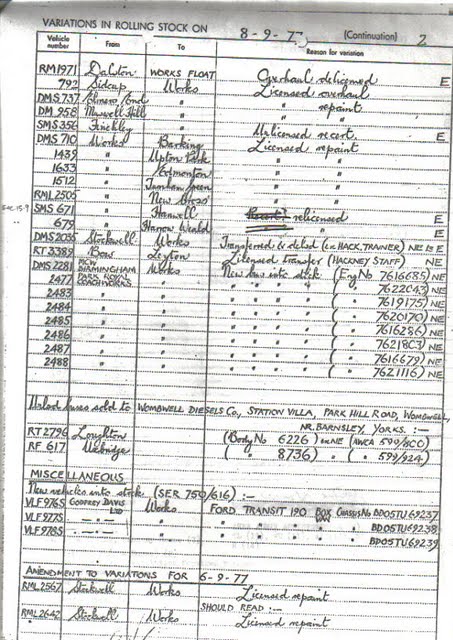 VARIATIONS IN ROLLING STOCK ON 8-9-77 (Continuation) 2
Vehicle number From To Reason for variation
RM1971 Dalston WORKS FLOAT Overhaul delicensed E
792 Sidcup Works Licensed overhaul
DMS737 Palmers Green " " repaint
DM 958 Muswell Hill " " "
SMS356 Finchley " Unlicensed recert. E
DMS710 Works Barking Licensed repaint
1439 " Upton Park " "
1633 " Edmonton " "
1512 " Turnham Green " "
RML2505 " New Cross " "
SMS 671 " Stanwell relicensed E
675 " Harrow Weald " E
DMS2055 Stockwell Works Transferred & delcd (ex HACK, TRAINER) NE to E
RT 3389 Bow Leyton Licensed transfer (HACKNEY STAFF) NE
DMS 2281 MCW BIRMINGHAM Works New bus into stock (Eng No 7616685) NE
2477 PARK ROYAL COACHWORKS " " " " " ( " 7622043) NE
2483 " " " " " " ( " 7619175) NE
2484 " " " " " " ( " 7620170) NE
2485 " " " " " " ( " 7616286) NE
2486 " " " " " " ( " 7621803) NE
2487 " " " " " " ( " 7616679) NE
2488 " " " " " " ( " 7621116) NE
buses sold to WOMBWELL DIESELS Co., STATION VILLA, PARK HILL ROAD, WOMBWELL,
NR. BARNSLEY, YORKS. :-
RT2796 Loughton (Body No 6226) NE (AWKA 599/800)
RF 617 Uxbridge ( " 8736) " ( " 599/924)
MISCELLANEOUS
New vehicles into stock (SER 750/616) :-
VLF976S GODFREY DAVIS LTD Works FORD TRANSIT 190 BOX VAN CHASSIS No BD05TU69237
VLF977S " " " " " " BD05TU69238
VLF978S " " " " " " BD05TU69239
AMENDMENT TO VARIATIONS FOR 6-9-77
RML2567 Stockwell Works Licensed repaint
SHOULD READ :-
RML2642 Stockwell Works Licensed repaint